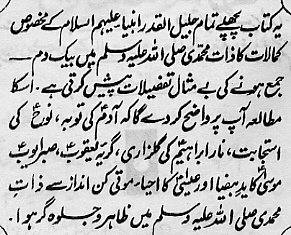 یہ کتاب پچھلے تمام جلیل القدر انبیاء علیہم السلام کے مخصوص
کمالات کا ذات محمدی صلی اللہ علیہ وسلم میں بیک دم —
جمع ہونے کی بے مثال تفصیلات پیش کرتی ہے۔ اسکا
مطالعہ آپ پر واضح کر دے گا کہ آدمؑ کی توبہ، نوحؑ کی
استجابت، نارِ ابراہیمؑ کی گلزاری، گریۂ یعقوبؑ، صبرِ ایوبؑ
موسیٰؑ کا ید بیضا اور عیسیٰؑ کا احیاء موتی کن انداز سے ذاتِ
محمدی صلی اللہ علیہ وسلم میں ظاہر و جلوہ گر ہوا۔